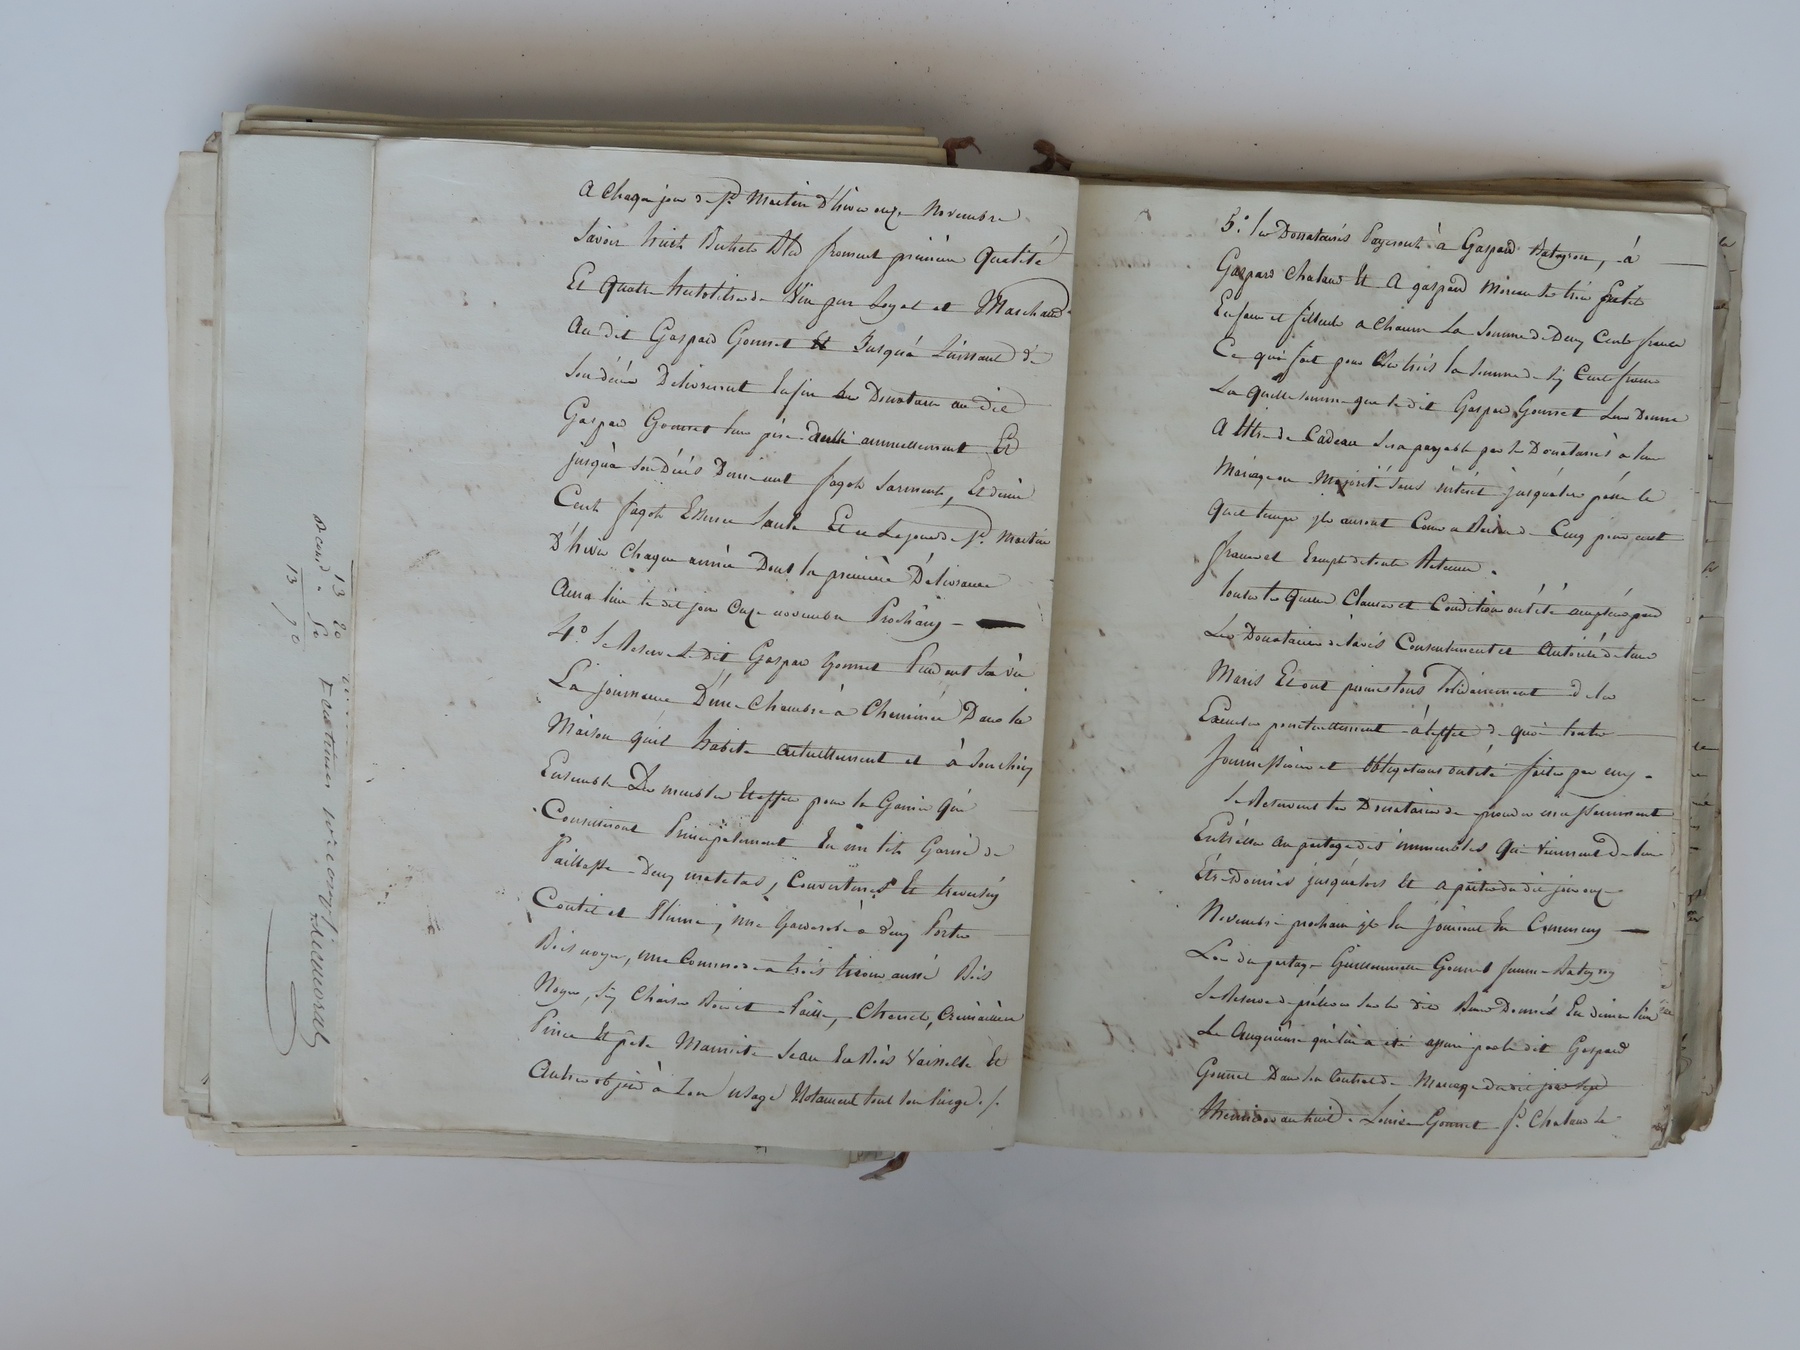 a chaque jour de St. Martin d'hiver onze Novembre
Savoir huit Bichets Bled froment première Qualité
Et Quatre hectolitres de Vin pur Loyal et Marchand
Au dit Gaspard Gonnet Et Jusqu'à L'instant de
Son décés Delivreront Enfin les Donataires au dit
Gaspard Gonnet leur père aussi annuellement Et
jusqu'à son Décés Demi cent fagots Sarments, Et demi
Cent fagots Essence Saule Et ce Le jour de St. Martin
D'hiver Chaque année Dont la première Délivrance
Aura lieu le dit jour Onze novembre Prochain —
4.o Se Reserve Le dit Gaspard Gonnet Pendant Sa vie
La jouissance D'une Chambre à Cheminée Dans la
Maison qu'il habite actuellement et à Son choix
Ensemble Des meubles Et effets pour la Garnir qui
Consisteront Principalement En un lit Garni de
Paillasse Deux matelas, Couvertures Et traversin
Coutil et Plume, une Garderobe à deux Portes
Bois noyer, une Commode a trois tiroirs aussi Bois
Noyer, Six Chaises Bois et Paille, Chenets, Crémaillère
Pince Et pelle Marmite Seau En Bois Vaisselle Et
Autres objets à Son usage Notament tout son linge ./.
13 20
Second 50
13 70
5.o les Donataires Payeront à Gaspard Bateyron, à
Gaspard Chaland Et A gaspard les trois petits
Enfans et filleuls a chacun La Somme de Deux Cents francs
Ce qui fait pour les trois la Somme de Six Cents francs
La quelle somme que le dit Gaspard Gonnet Leur Donne
A titre de Cadeau Sera payable par les Donataires à leur
Mariage ou Majorité Sans intérêt jusqu'alors passé le
quel temps ils auront Cours a Raison de Cinq pour cent
francs et Exempt de toute Retenue.
toutes les quelles Clauses et Conditions ont été acceptées par
Les Donataires de l'avis Consentement et Autorité de leurs
Maris Et ont promis tous Solidairement de les
Executer ponctuellement à l'effet de quoi toutes
Soumissions et obligations ont été faites par eux.
Se Reservent les Donataires de proceder incessamment
Entr'elles au partage des immeubles qui Viennent de leur
Être Donnés jusqu'alors Et a partir du dit jour onze
Novembre prochain ils En Jouiront En Commun —
Lors du partage Gonnet femme
Se Reserve de prélever Sur les dits Biens Donnés En dimin
Le Cinquième qui lui a été assuré par le dit Gaspard
Gonnet Dans Son Contrat de Mariage du dit jour Sept
Messidor an huit. Louise Gonnet fe. Chaland Se